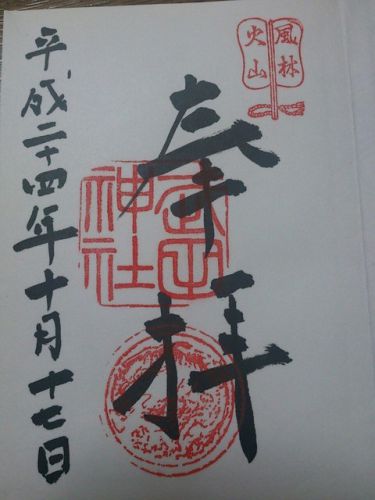 風林
火山
奉拝
武田
神社
平成二十四年十月十七日